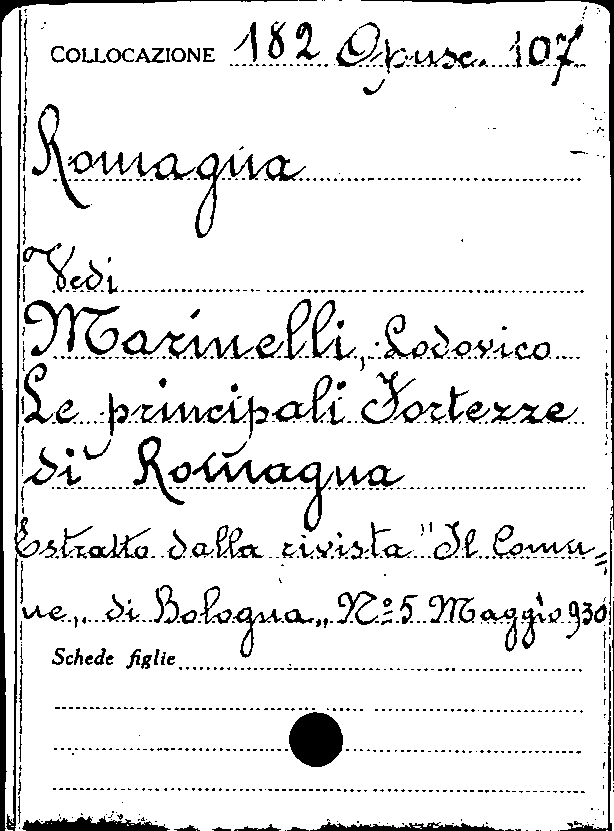 COLLOCAZIONE 182 Opusc. 107
Romagna
Vedi
Marinelli, Lodovico
Le principali Fortezze
di Romagna
Estratto dalla rivista "Il Comu=
ne„ di Bologna„ Nº 5 Maggio 930
Schede figlie